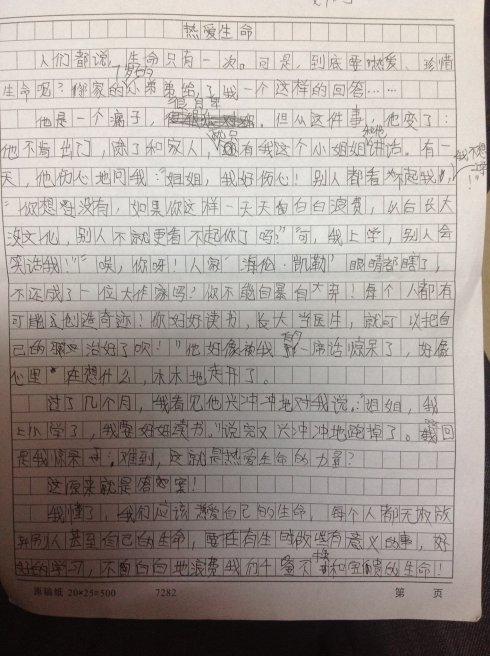 热爱生命
人们都说，生命只有一次。可是，到底要热爱、珍惜
7岁的
生命呢？邻家的小弟弟给了我一个这样的回答……
很自卑
他是一个 子，但从这件事，他变了：
和他
他不肯出门，除了和家人，只有我这个小姐姐讲话。有一
天，他伤心地问我：“姐姐，我好伤心！别人都看不起我，
我不想上学！”
“你想过没有，如果你这样一天天的白白浪费，以后长大
没文化，别人不就更看不起你了吗？”“可，我上学，别人会
笑话我！”“唉，你呀！人家‘海伦·凯勒’眼睛都瞎了，
不还成了一位大作家吗？你不能自暴自弃！每个人都有
可能创造奇迹！你好好读书，长大当医生，就可以把自
己的 治好了吹！”他好像被我的一席话惊呆了，好像
心里在想什么，木木地走开了。
过了几个月，我看见他兴冲冲地对我说：“姐姐，我
上小学了，我要好好读书。”说完又兴冲冲地跑掉了。这回
是我惊呆了：难到，这就是热爱生命的力量？
这原来就是答案！
我懂了，我们应该热爱自己的生命，每个人都无权放
弃别人甚至自己的生命，要在有生时做些有意义的事，好
好的学习，不能白白地浪费我们 和宝贵的生命！
准稿纸 20×25=500 7282 第 页